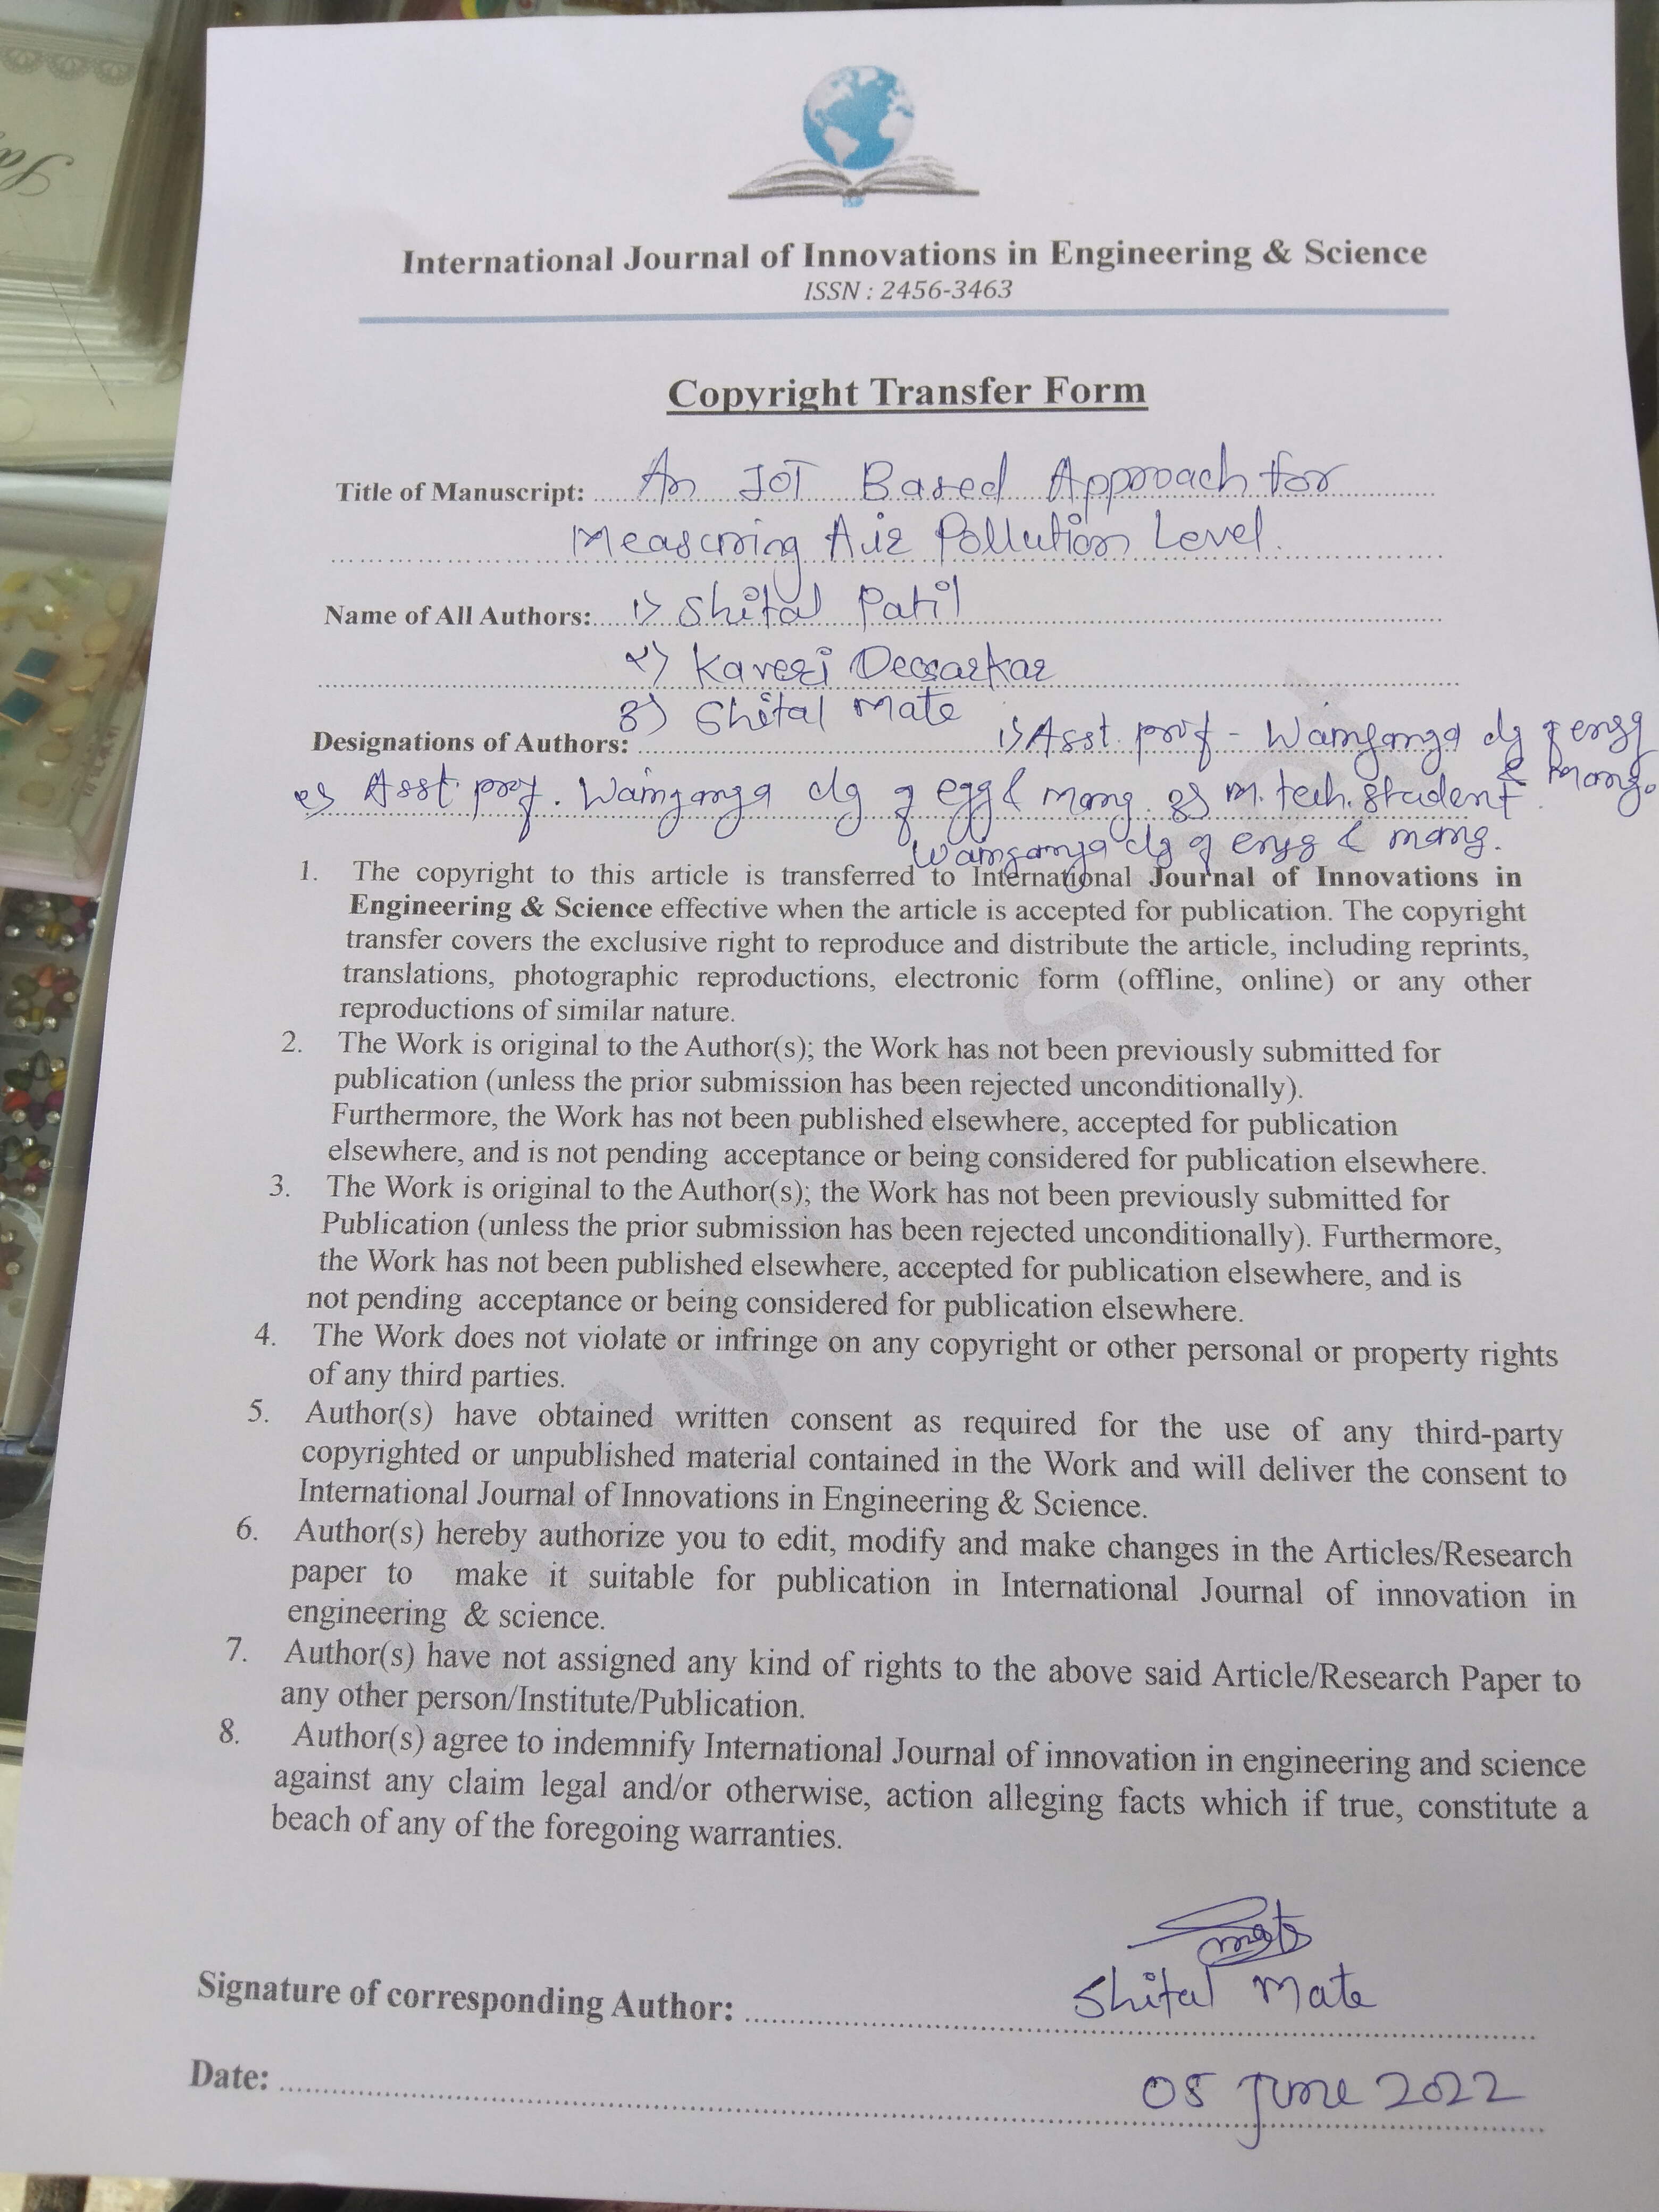 International Journal of Innovations in Engineering & Science
ISSN : 2456-3463
Copyright Transfer Form
Title of Manuscript: An IOT Based Approach for
Measuring Air Pollution Level.
Name of All Authors: 1) Shital Patil
2) Kaveri
3) Shital Mate
Designations of Authors: 1) Asst. prof - Wainganga clg of engg
& mang.
2) Asst. prof. Wainganga clg of egg & mang. 3) M. tech. student
Wainganga clg of engg & mang.
1. The copyright to this article is transferred to International Journal of Innovations in
Engineering & Science effective when the article is accepted for publication. The copyright
transfer covers the exclusive right to reproduce and distribute the article, including reprints,
translations, photographic reproductions, electronic form (offline, online) or any other
reproductions of similar nature.
2. The Work is original to the Author(s); the Work has not been previously submitted for
publication (unless the prior submission has been rejected unconditionally).
Furthermore, the Work has not been published elsewhere, accepted for publication
elsewhere, and is not pending acceptance or being considered for publication elsewhere.
3. The Work is original to the Author(s); the Work has not been previously submitted for
Publication (unless the prior submission has been rejected unconditionally). Furthermore,
the Work has not been published elsewhere, accepted for publication elsewhere, and is
not pending acceptance or being considered for publication elsewhere.
4. The Work does not violate or infringe on any copyright or other personal or property rights
of any third parties.
5. Author(s) have obtained written consent as required for the use of any third-party
copyrighted or unpublished material contained in the Work and will deliver the consent to
International Journal of Innovations in Engineering & Science.
6. Author(s) hereby authorize you to edit, modify and make changes in the Articles/Research
paper to make it suitable for publication in International Journal of innovation in
engineering & science.
7. Author(s) have not assigned any kind of rights to the above said Article/Research Paper to
any other person/Institute/Publication.
8. Author(s) agree to indemnify International Journal of innovation in engineering and science
against any claim legal and/or otherwise, action alleging facts which if true, constitute a
beach of any of the foregoing warranties.
Mate
Signature of corresponding Author: Shital Mate
Date: 05 June 2022